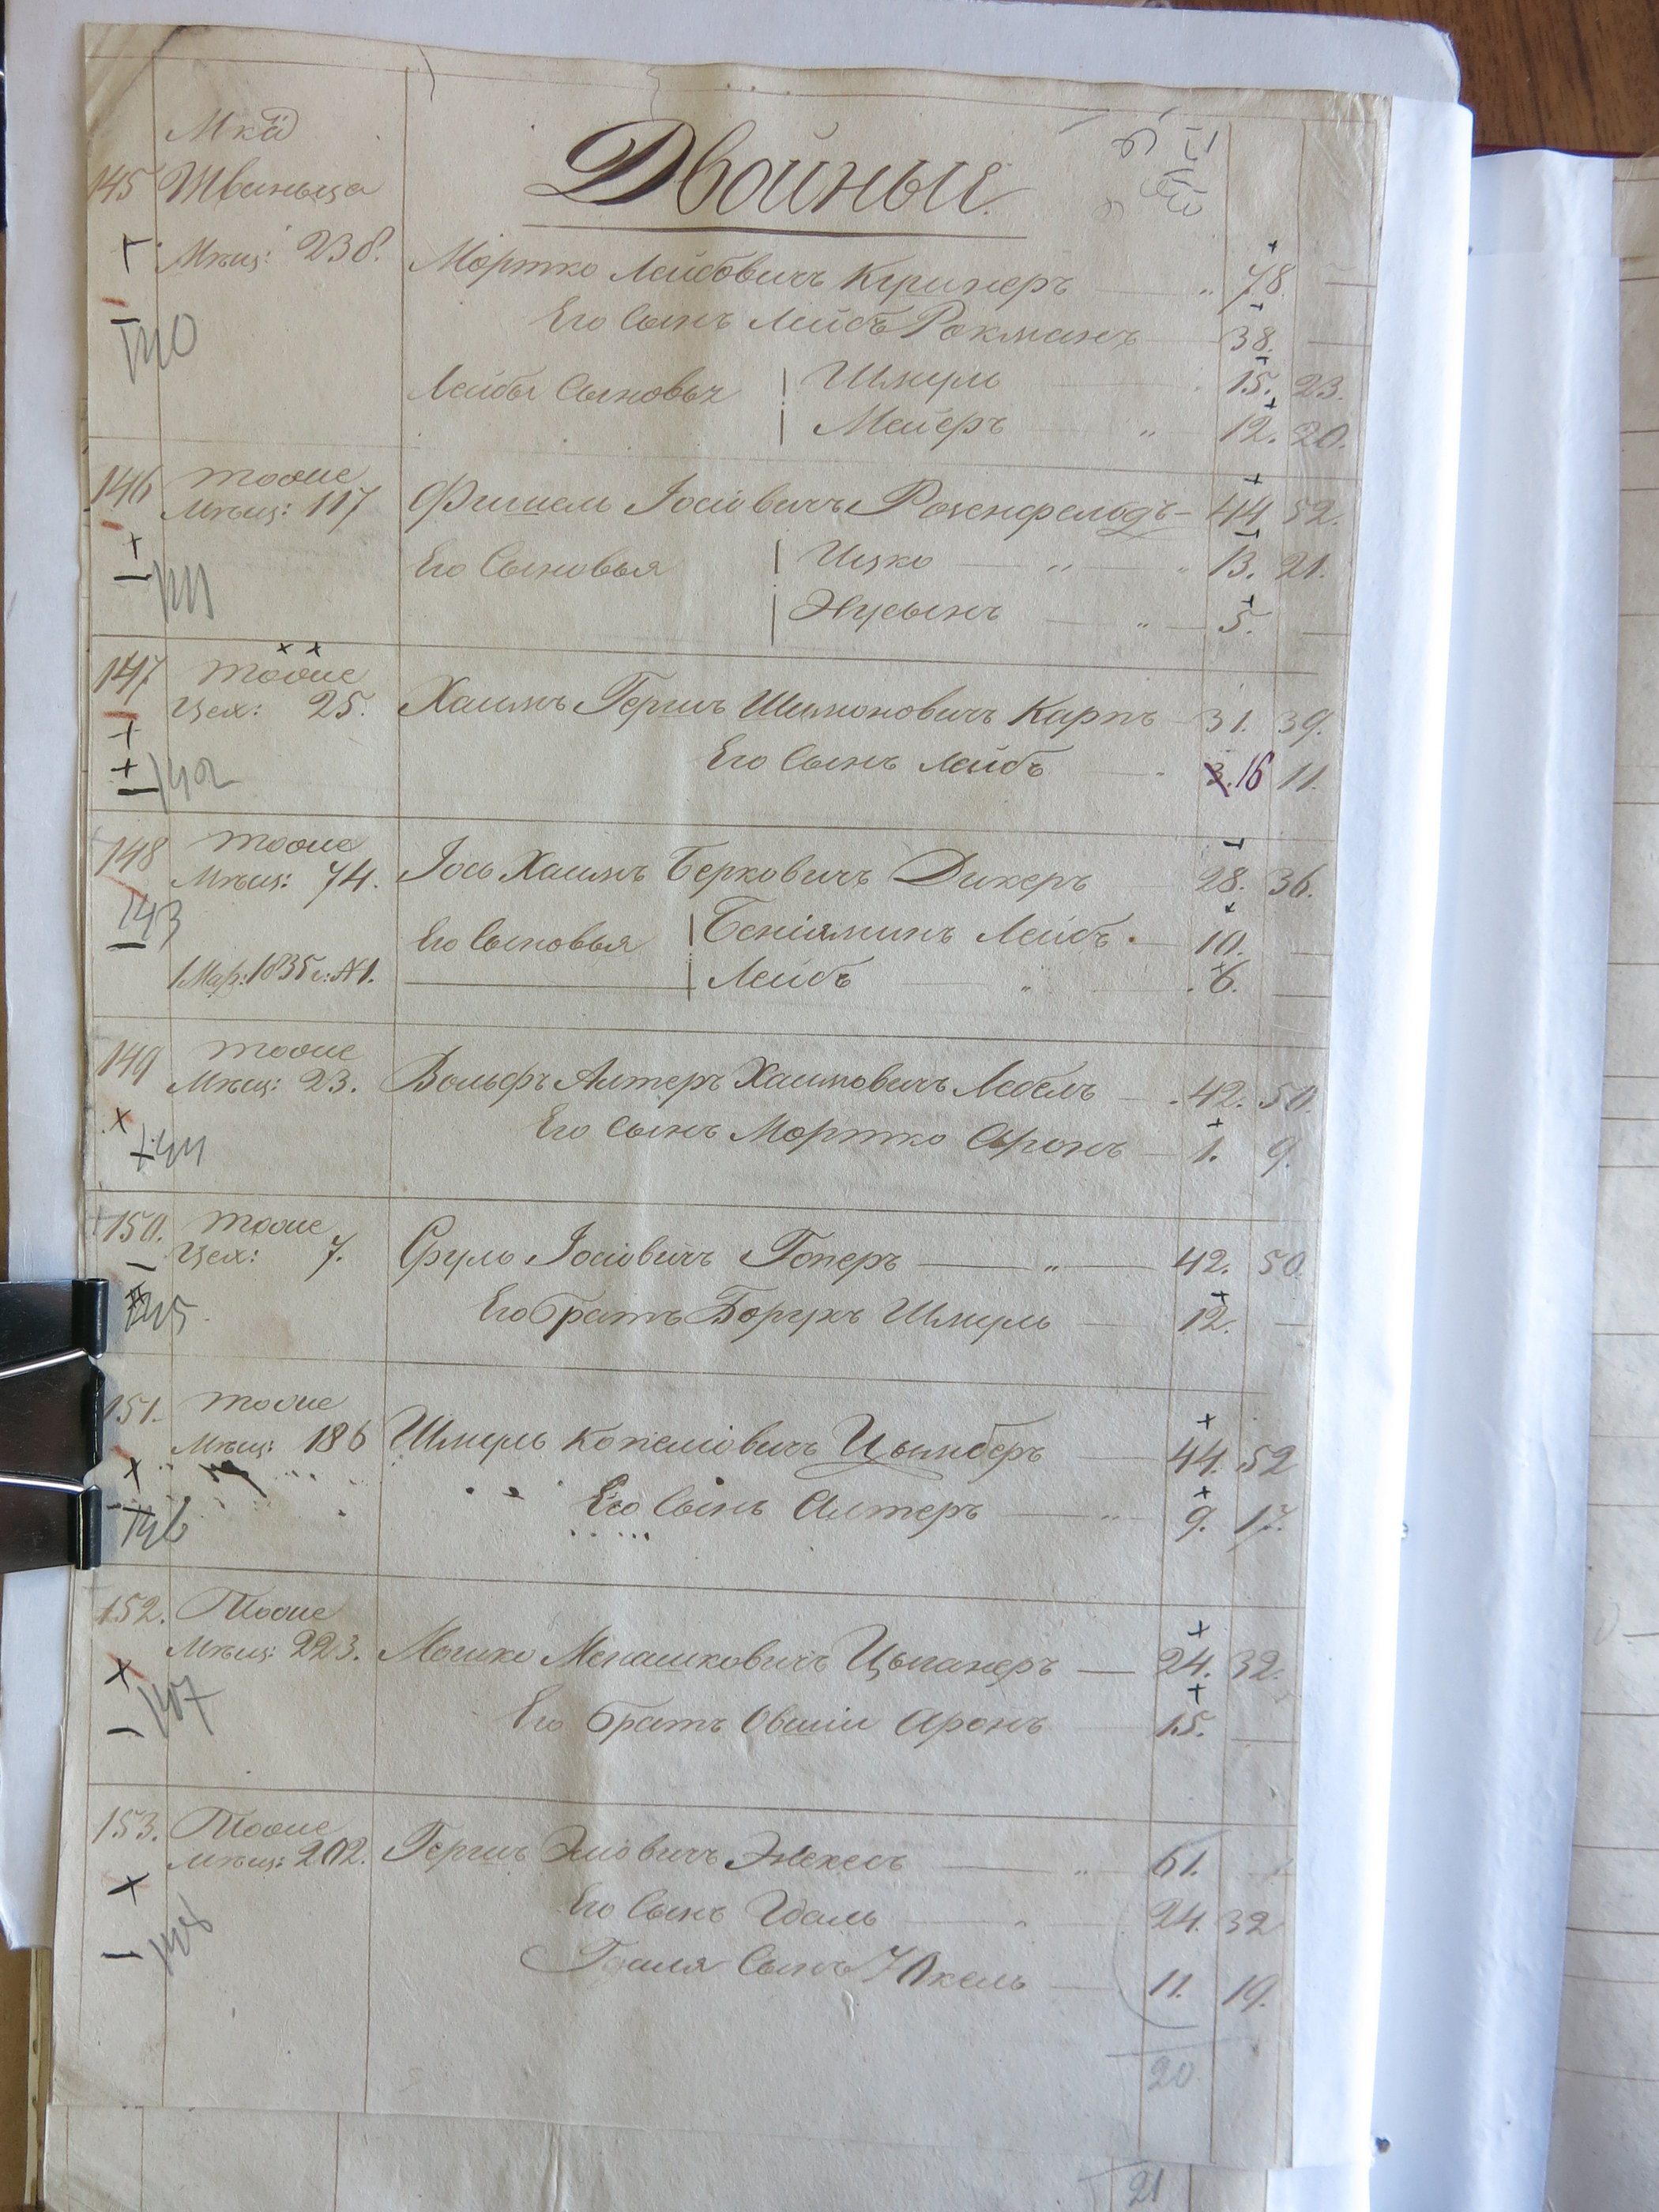 Мка
Двойные.
145 Жванца
Мѣщ: 238. Мортко Лейбовичъ Кришеръ 78 —
140 Его Сынъ Лейбъ Рокманъ 38. —
Лейбы Сыновья Шмуль 15. 23.
Мейеръ " 12. 20.
146 тоже
Мѣщ: 117 Фишель Іосіовичъ Розенфельдъ 44 52.
Его Сыновья Ицко " 13. 21.
141 Нусынъ " 5. —
147 тоже
Цех: 25. Хаимъ Гершъ Шимоновичъ Карпъ 31. 39.
142 Его Сынъ Лейбъ 3. 16 11.
148 тоже
Мѣщ: 74. Іось Хаимъ Берковичъ Дикеръ 28. 36.
143 Его Сыновья Беніяминъ Лейбъ 10. —
1 Мар: 1835 г: №1. Лейбъ " 6. —
149 тоже
Мѣщ: 23. Вольфъ Алтеръ Хаимовичъ Лебель 42. 50.
144 Его Сынъ Мортко Аронъ 1. 9.
150. тоже
Цех: 7. Сруль Іосіовичъ Гоперъ " 42. 50.
145 Его Братъ Борухъ Шмуль 12. —
151. тоже
Мѣщ: 186 Шмуль Копеліовичъ Цымберъ 44. 52
146 Его Сынъ Алтеръ " 9. 17.
152. Тоже
Мѣщ: 223. Мошко Менашковичъ Цыганеръ — 24. 32.
147 Его Братъ Овшіи Аронъ 15. —
153. Тоже
Мѣщ: 202. Гершъ Эліовичъ " 61.
Его Сынъ Гдаль " 24. 32
148 Гдаля Сынъ 11. 19.
20
21